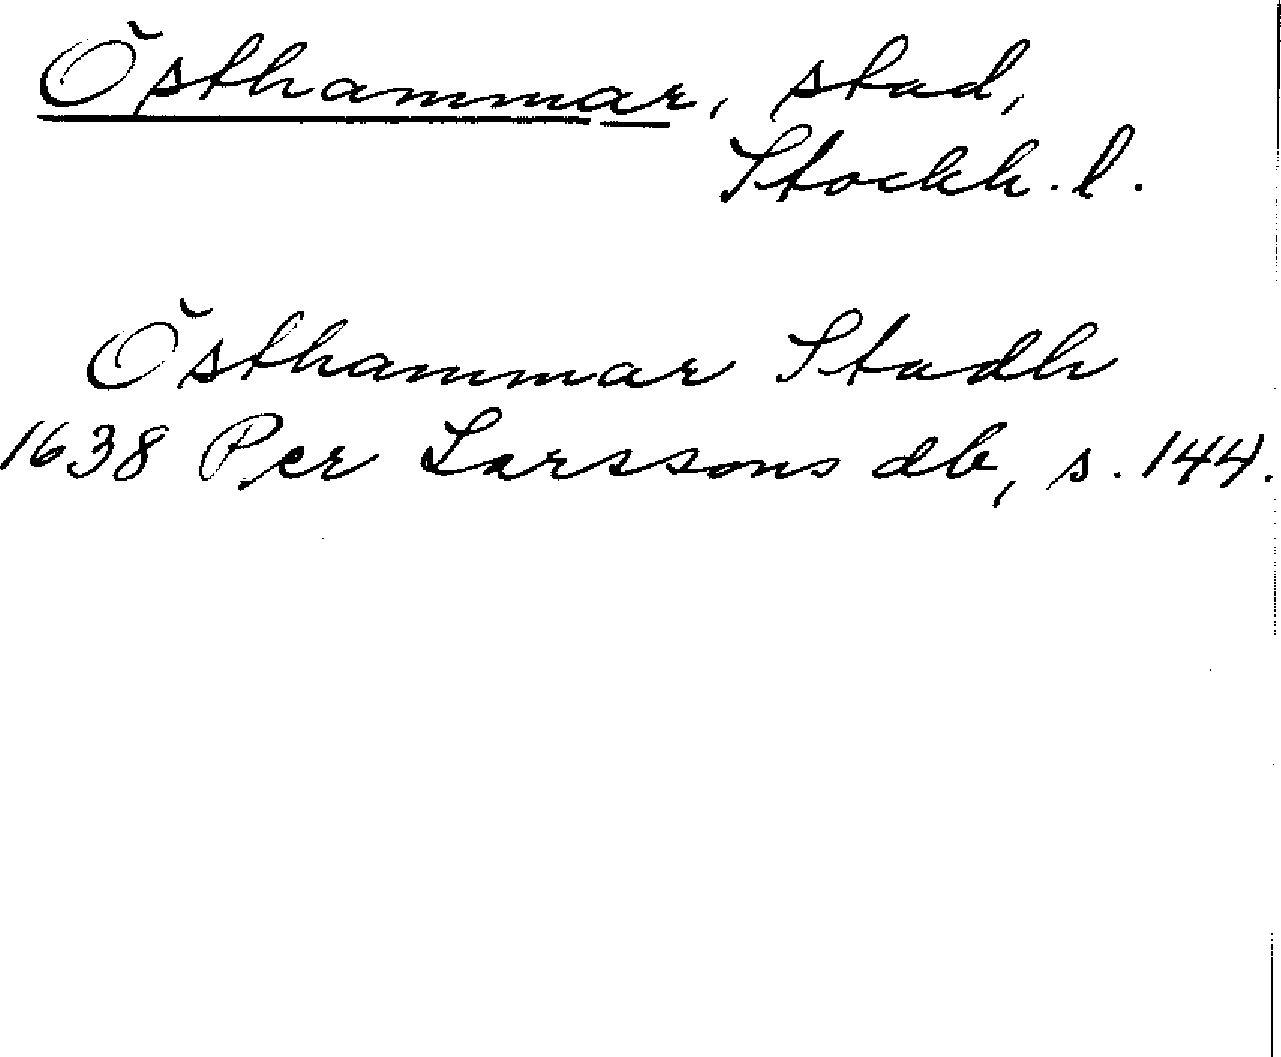 Östhammar, stad,
Stockh. l.
Östhammar Stadh
1638 Per Larssons db, s. 144.